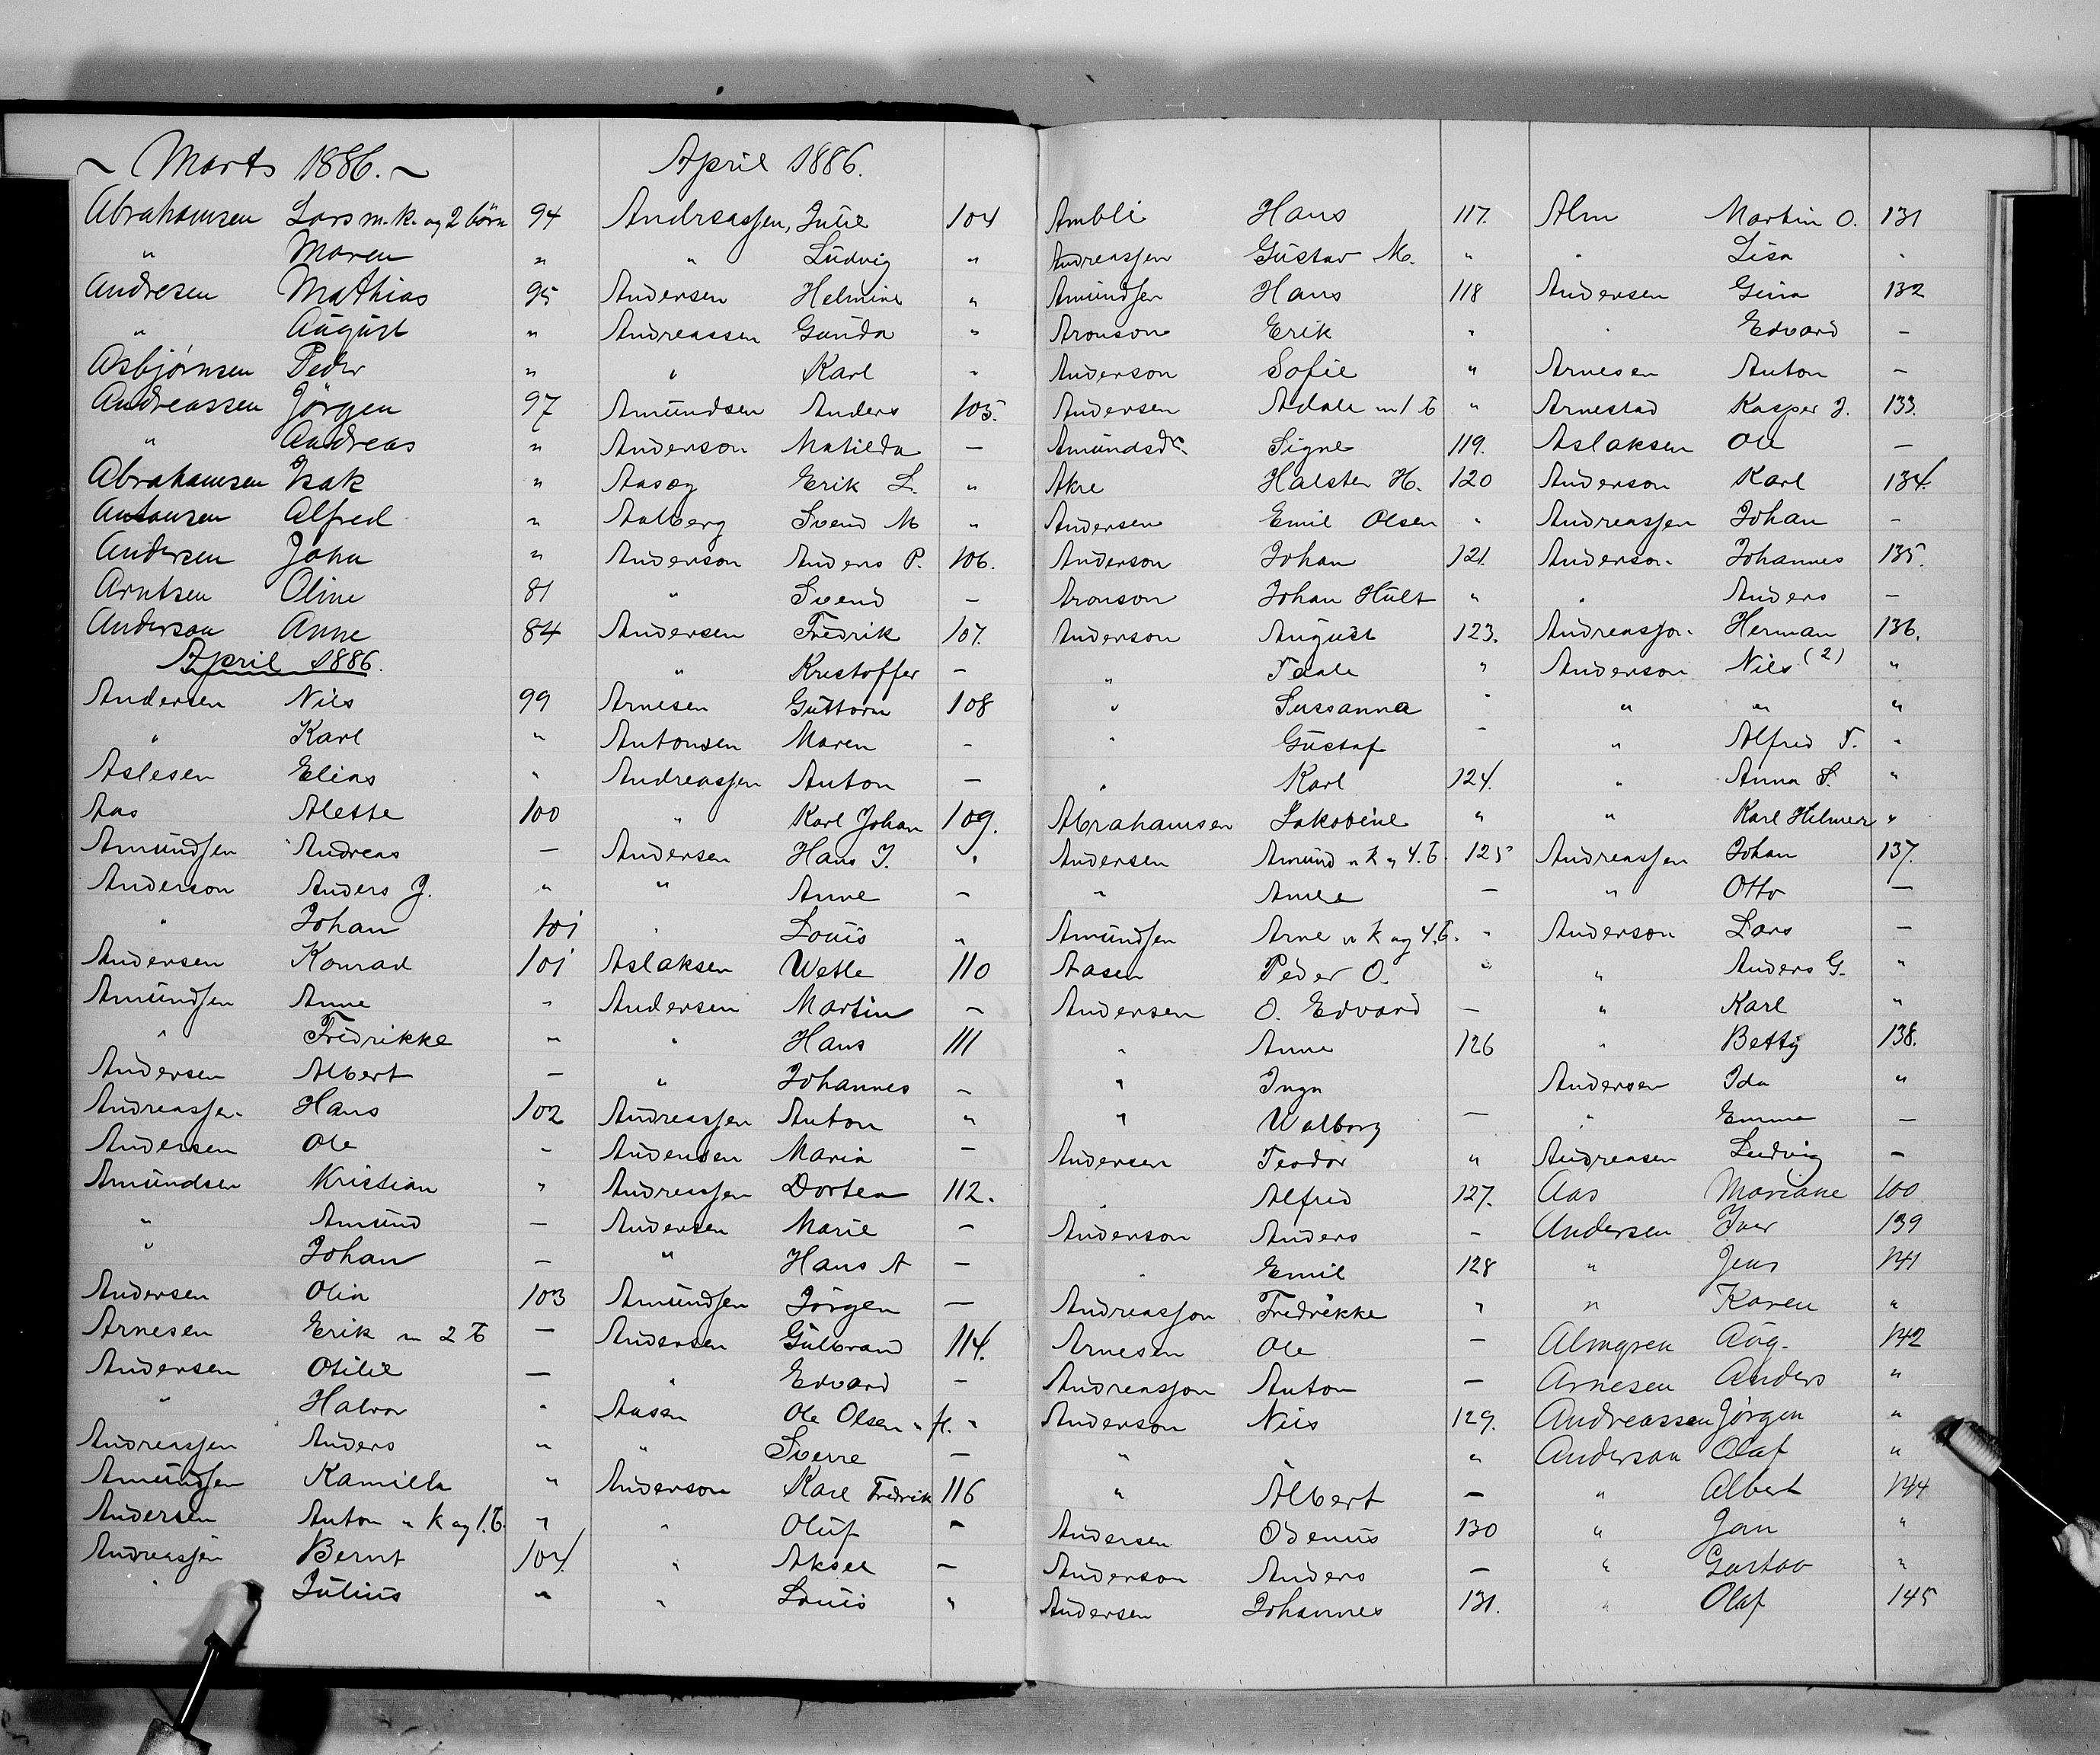 ~ Marts 1886. ~
Abrahamsen Lars m. k. og 2 börn 94
" Maren "
Andresen Mathias 95
" August "
Asbjørnsen Peder "
Andreassen Jörgen 97
" Andreas "
Abrahamsen Isak "
Antonsen Alfred "
Andersen John "
Arntsen Oline 81
Anderson Anne 84
April 1886.
Andersen Nils 99
" Karl "
Aslesen Elias "
Aas Alette 100
Amundsen Andreas —
Anderson Anders J. "
" Johan 101
Andersen Konrad 101
Amundsen Anne "
" Fredrikke "
Andersen Albert —
Andreassen Hans 102
Andersen Ole "
Amundsen Kristian "
" Amund —
" Johan —
Andersen Olia 103
Arnesen Erik m 2 B —
Andersen Otilie —
" Halvor "
Andreassen Anders "
Amundsen Kamilla "
Andersen Anton m k og 1. B. "
Andreassen Bernt 104.
" Julius "
April 1886.
Andreassen, Julie 104
" Ludvig "
Andersen Helmine "
Andreassen Gunda "
" Karl "
Amundsen Anders 105.
Anderson Matilda —
Aasøy Erik L. "
Aalberg Svend M "
Anderson Anders P. 106.
" Svend —
Andersen Fredrik 107.
" Kristoffer —
Arnesen Guttorm 108
Antonsen Maren "
Andreassen Anton —
" Karl Johan 109.
Andersen Hans J. "
" Anne —
" Louis "
Aslaksen Wetle 110
Andersen Martin —
" Hans 111
" Johannes —
Andreassen Anton "
Andersen Maria —
Andreassen Dortea 112.
Andersen Marie —
" Hans A —
Amundsen Jörgen —
Andersen Gulbrand 114.
" Edvard —
Aasen Ole Olsen m fl. "
" Sverre —
Anderson Karl Fredrik 116
" Oluf —
" Aksel —
" Louis "
Ambli Hans 117.
Andreassen Gustav M. "
Amundsen Hans 118
Aronson Erik "
Anderson Sofie "
Andersen Adale m 1 B "
Amundsdr. Signe 119.
Akre Halsten H. 120
Andersen Emil Olsen "
Anderson Johan 121.
Aronson Johan Hult "
Anderson August 123.
" Taale "
" Sussanna "
" Gustaf —
" Karl 124.
Abrahamsen Jakobine "
Andersen Amund m k og 4. B. 125
" Anne —
Amundsen Arne m k og 4. B. "
Aasen Peder O. "
Andersen O. Edvard —
" Anne 126
" Inga
" Walborg —
Andersen Teodor "
" Alfred 127.
Anderson Anders —
" Emil 128
Andreasson Fredrikke "
Arnesen Ole —
Andreasson Anton —
Anderson Nils 129.
" "
" Albert —
Andersen Odenius 130
Anderson Anders —
Andersen Johannes 131.
Alm Martin O. 131
" Lisa "
Andersen Gina 132
" Edvard —
Arnesen Anton —
Arnestad Kasper J. 133.
Aslaksen Ole —
Anderson Karl 134.
Andreassen Johan —
Anderson Johannes 135.
" Anders —
Andreasson Herman 136.
Anderson Nils (2) "
" " "
" Alfred T. "
" Anna S. "
" Karl Hilmer "
Andreassen Johan 137.
" Otto —
Anderson Lars —
" Anders G. "
" Karl "
" Betty 138.
Andersen Ida "
" Emma —
Andreasen Ludvig —
Aas Mariane 100
Andersen Iver 139
" Jens 141
" Karen "
Almgren Aug. 142
Arnesen Anders "
Andreassen Jørgen "
Anderson Olaf "
" Albert 144
" Jan "
" Gustav "
" Olaf 145